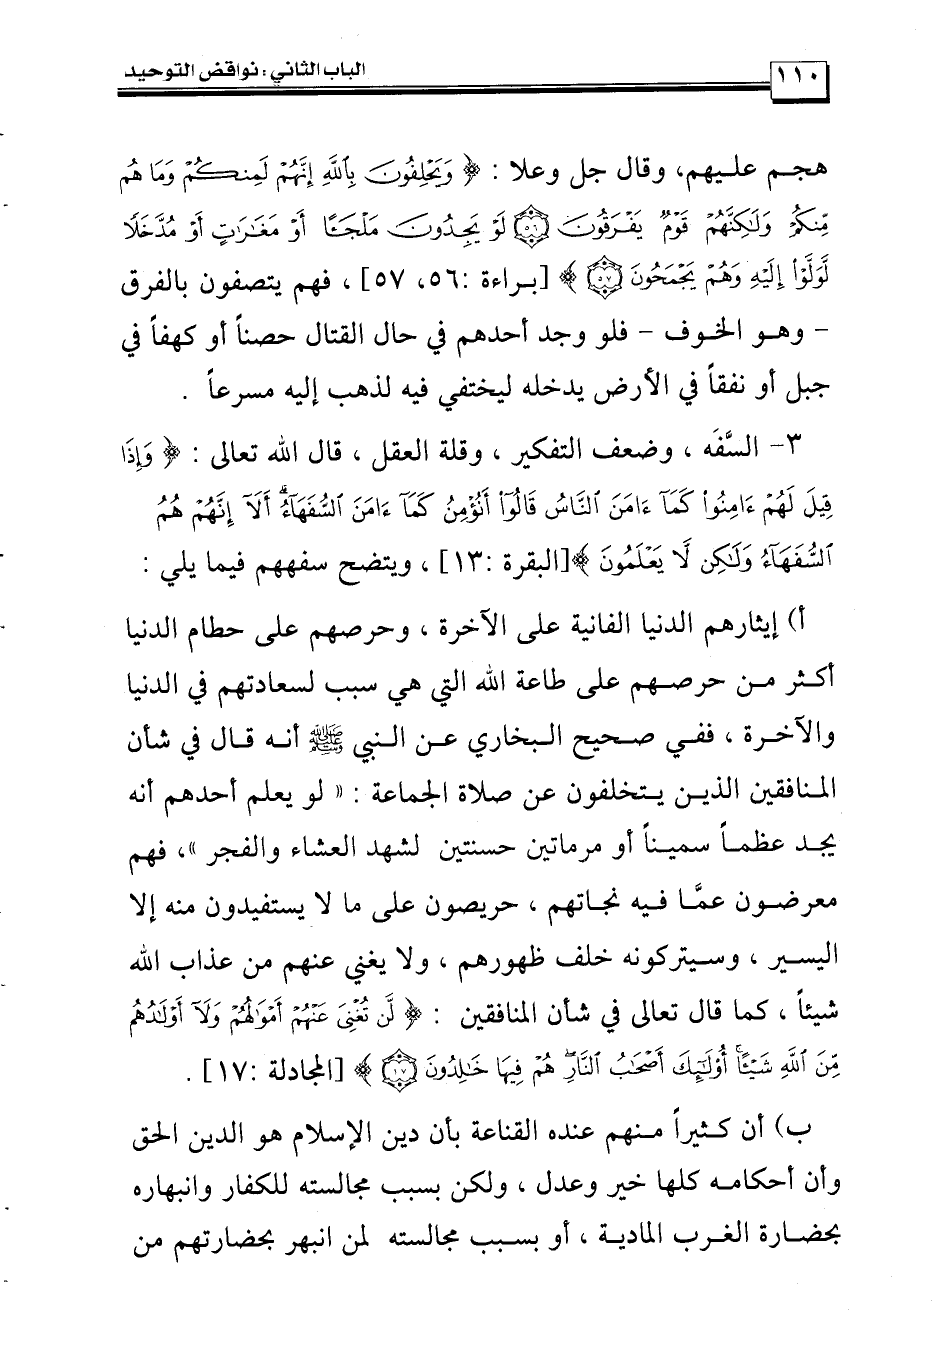 ١١٠
الباب الثاني : نواقض التوحيد
هجم عليهم، وقال جل وعلا : ﴿ وَيَحْلِفُونَ بِٱللَّهِ إِنَّهُمْ لَمِنكُمْ وَمَا هُم
مِّنكُمْ وَلَٰكِنَّهُمْ قَوْمٌ يَفْرَقُونَ ۝٥٦ لَوْ يَجِدُونَ مَلْجَـًٔا أَوْ مَغَٰرَٰتٍ أَوْ مُدَّخَلًا
لَّوَلَّوْا۟ إِلَيْهِ وَهُمْ يَجْمَحُونَ ۝٥٧ ﴾ [براءة :٥٦، ٥٧] ، فهم يتصفون بالفرق
- وهو الخوف - فلو وجد أحدهم في حال القتال حصناً أو كهفاً في
جبل أو نفقاً في الأرض يدخله ليختفي فيه لذهب إليه مسرعاً .
٣- السَّفَه ، وضعف التفكير ، وقلة العقل ، قال الله تعالى : ﴿ وَإِذَا
قِيلَ لَهُمْ ءَامِنُوا۟ كَمَآ ءَامَنَ ٱلنَّاسُ قَالُوٓا۟ أَنُؤْمِنُ كَمَآ ءَامَنَ ٱلسُّفَهَآءُ ۗ أَلَآ إِنَّهُمْ هُمُ
ٱلسُّفَهَآءُ وَلَٰكِن لَّا يَعْلَمُونَ ﴾[البقرة :١٣] ، ويتضح سفههم فيما يلي :
أ) إيثارهم الدنيا الفانية على الآخرة ، وحرصهم على حطام الدنيا
أكثر من حرصهم على طاعة الله التي هي سبب لسعادتهم في الدنيا
والآخرة ، ففي صحيح البخاري عن النبي ﷺ أنه قال في شأن
المنافقين الذين يتخلفون عن صلاة الجماعة : « لو يعلم أحدهم أنه
يجد عظماً سميناً أو مرماتين حسنتين لشهد العشاء والفجر »، فهم
معرضون عمَّا فيه نجاتهم ، حريصون على ما لا يستفيدون منه إلا
اليسير ، وسيتركونه خلف ظهورهم ، ولا يغني عنهم من عذاب الله
شيئاً ، كما قال تعالى في شأن المنافقين : ﴿ لَّن تُغْنِىَ عَنْهُمْ أَمْوَٰلُهُمْ وَلَآ أَوْلَٰدُهُم
مِّنَ ٱللَّهِ شَيْـًٔا ۚ أُو۟لَٰٓئِكَ أَصْحَٰبُ ٱلنَّارِ ۖ هُمْ فِيهَا خَٰلِدُونَ ۝١٧ ﴾ [المجادلة :١٧] .
ب) أن كثيراً منهم عنده القناعة بأن دين الإسلام هو الدين الحق
وأن أحكامه كلها خير وعدل ، ولكن بسبب مجالسته للكفار وانبهاره
بحضارة الغرب المادية ، أو بسبب مجالسته لمن انبهر بحضارتهم من